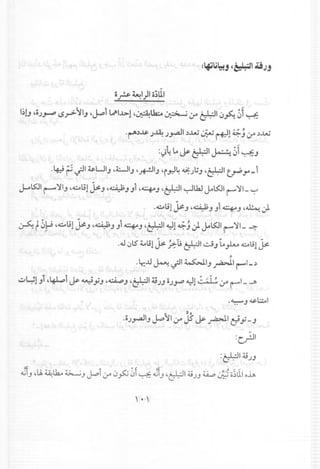 ورقة التبليغ، وبياناتها:
المادة الرابعة عشرة
يجب أن يكون التبليغ من نسختين متطابقتين، إحداهما أصل، والأخرى صورة، وإذا
تعدد من وُجِّه إليهم تعين تعدد الصور بقدر عددهم.
ويجب أن يشتمل التبليغ على ما يأتي:
أ- موضوع التبليغ، وتاريخه باليوم، والشهر، والسنة، والساعة التي تم فيها.
ب- الاسم الكامل لطالب التبليغ، ومهنته، أو وظيفته، ومحل إقامته، والاسم الكامل
لمن يمثله، ومهنته، أو وظيفته، ومحل إقامته.
ج- الاسم الكامل لمن وُجِّه إليه التبليغ، ومهنته أو وظيفته، ومحل إقامته، فإن لم يكن
محل إقامته معلوما وقت التبليغ فآخر محل إقامة كان له.
د- اسم المحضر والمحكمة التي يعمل لديها.
هـ- اسم من سُلِّمت إليه صورة ورقة التبليغ، وصفته، وتوقيعه على أصلها، أو إثبات
امتناعه وسببه.
و- توقيع المحضر على كل من الأصل والصورة.
الشرح:
ورقة التبليغ:
هذه المادة تُبيِّن صفة ورقة التبليغ، وأنه يجب أن يكون من أصل ونسخة مطابقة لها، وأنه
١٠١